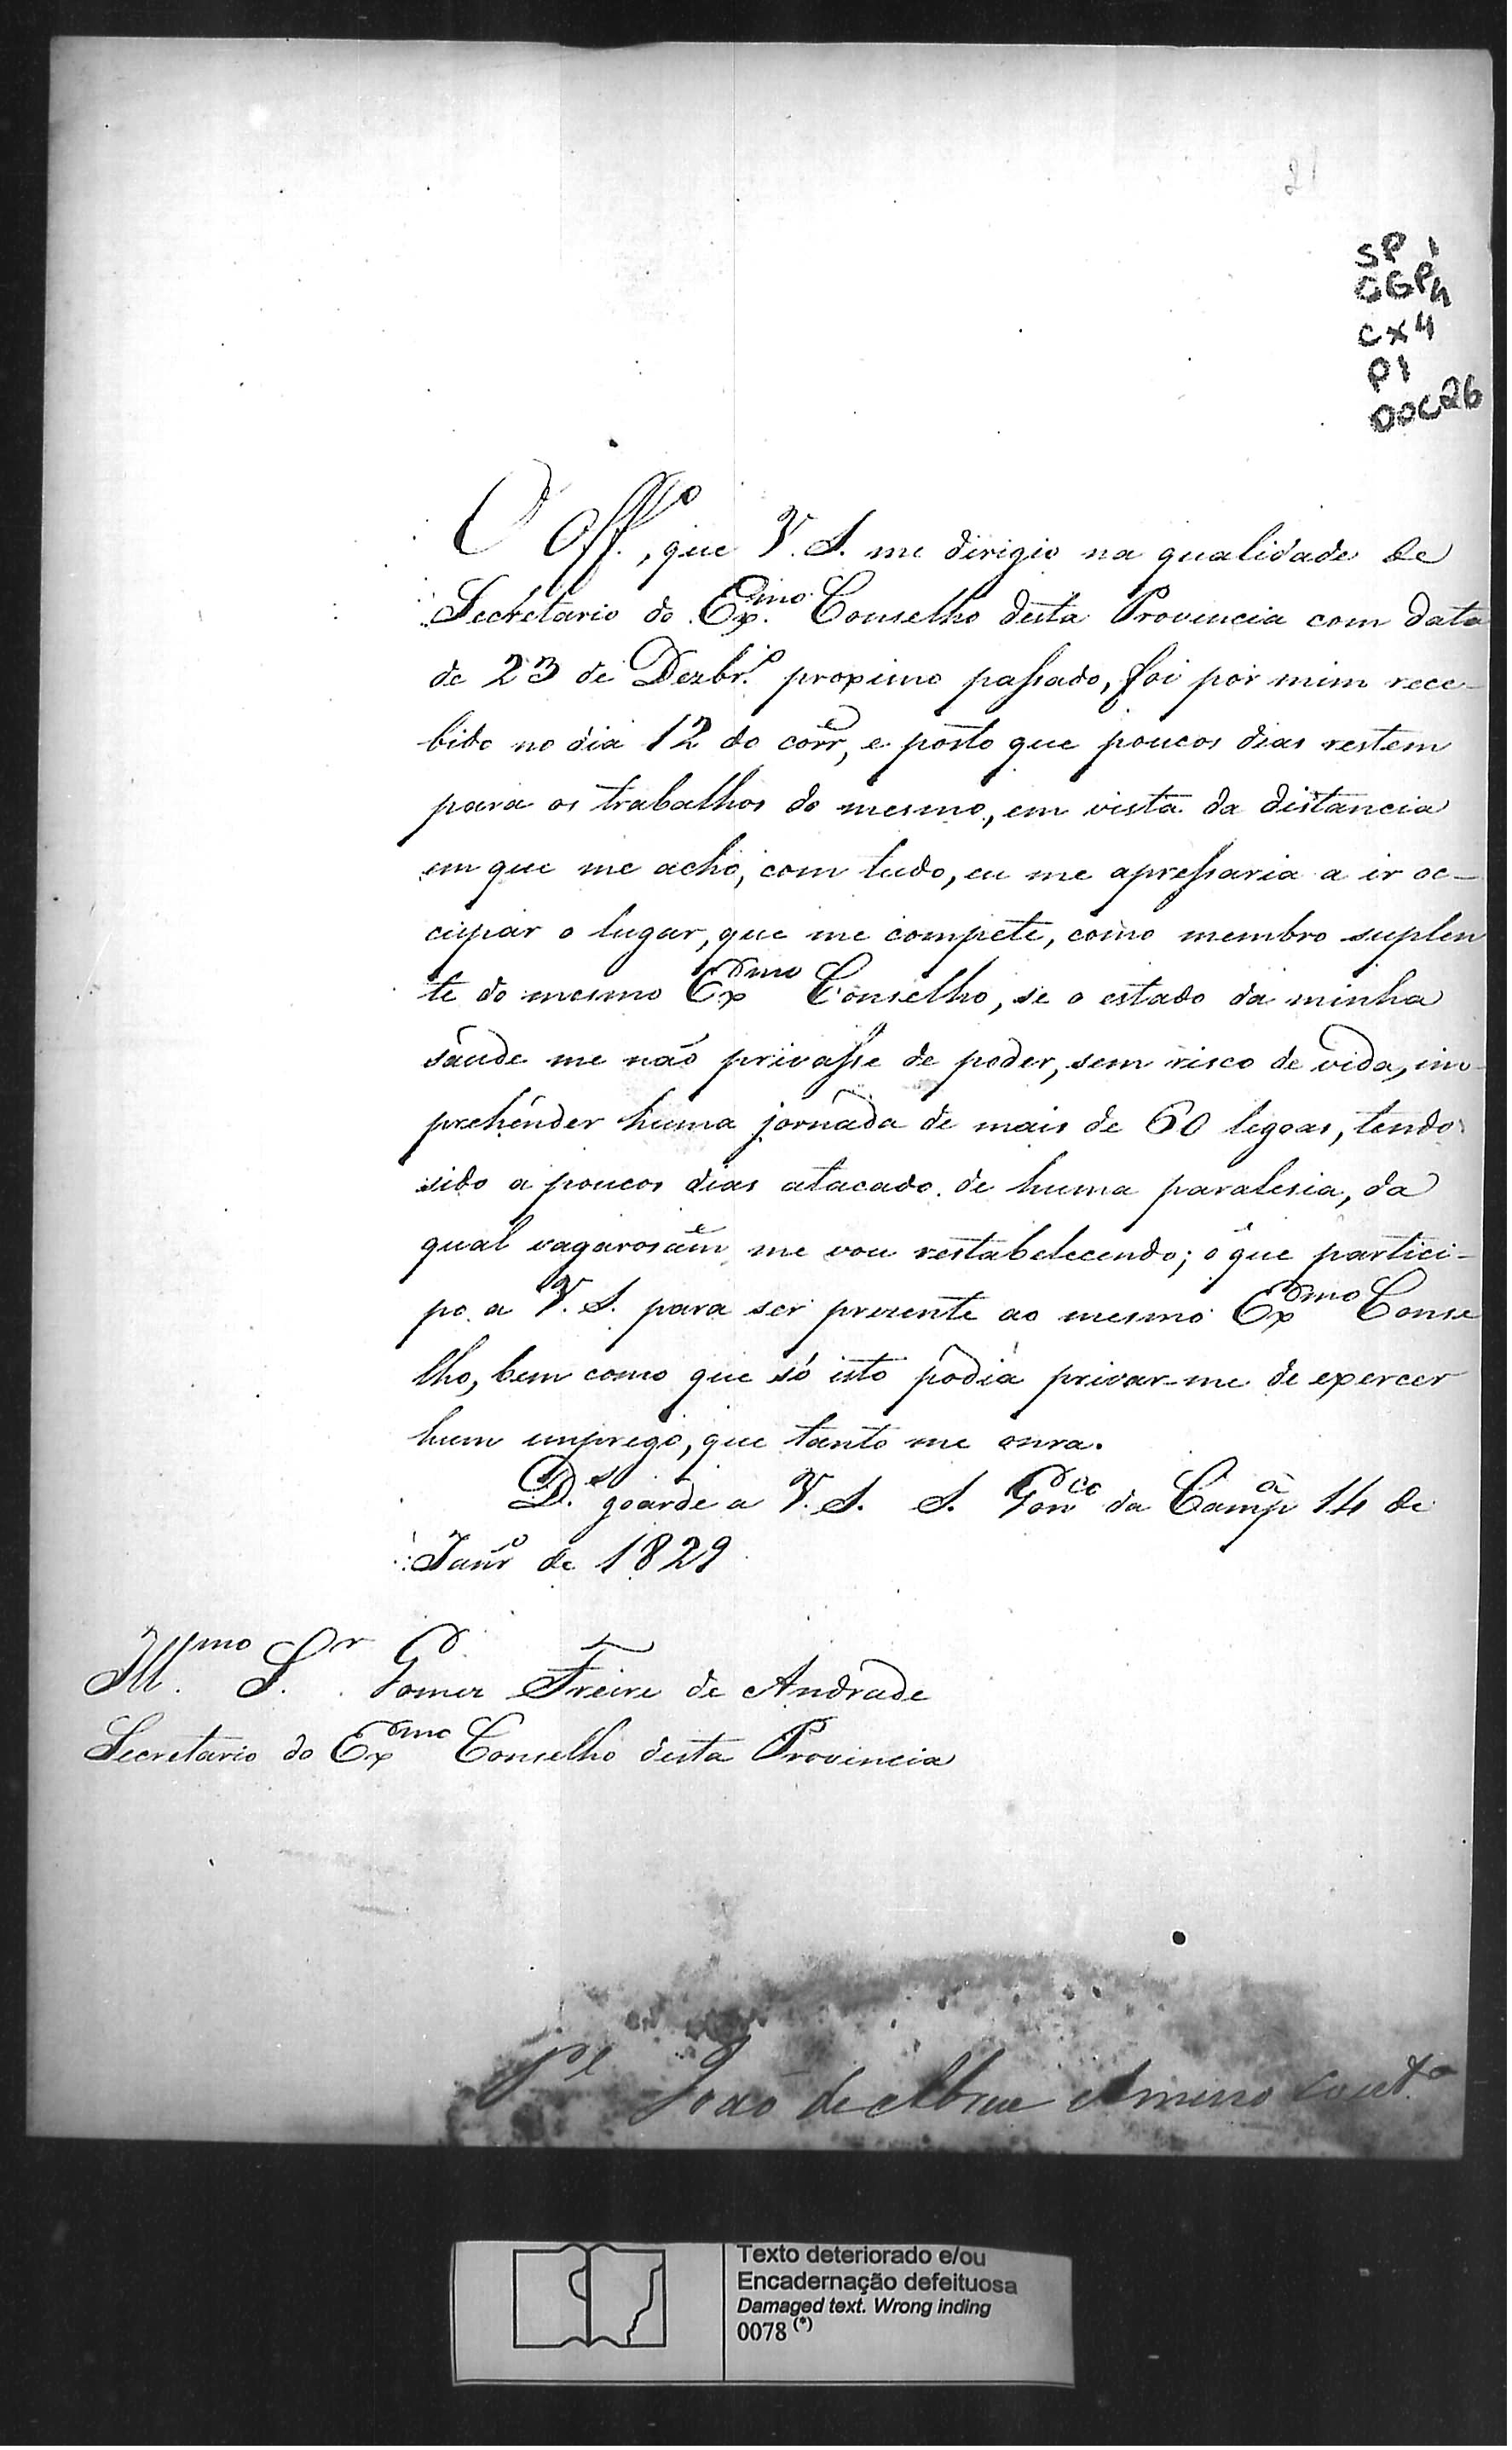 21
SP 1
CGP4
CX4
P1
DOC26
O Off.º, que V. S. me dirigio na qualidade de
Secretario do Ex.mo Conselho desta Provincia com data
de 23 de Dezbr.º proximo passado, foi por mim rece-
bido no dia 12 do corre, e posto que poucos dias restem
para os trabalhos do mesmo, em vista da distancia
em que me acho, com tudo, eu me apressaria a ir oc-
cupar o lugar, que me compete, como membro suplen
te do mesmo Exmo Conselho, se o estado da minha
saude me não privasse de poder, sem risco de vida, im-
prehender huma jornada de mais de 60 legoas, tendo
sido a poucos dias atacado de huma paralesia, da
qual vagarosame me vou restabelecendo; o que partici-
po a V. S. para ser prezente ao mesmo Exmo Conse
lho, bem como que só isto podia privar-me de exercer
hum emprego, que tanto me onra.
D.s goarde a V. S. S. Gonco da Campa 14 de
Janro de 1829
Ill.mo S.r Gomes Freire de Andrade
Secretario do Exmo Conselho desta Provincia
João de Abreu
Texto deteriorado e/ou
Encadernação defeituosa
Damaged text. Wrong inding
0078 (*)